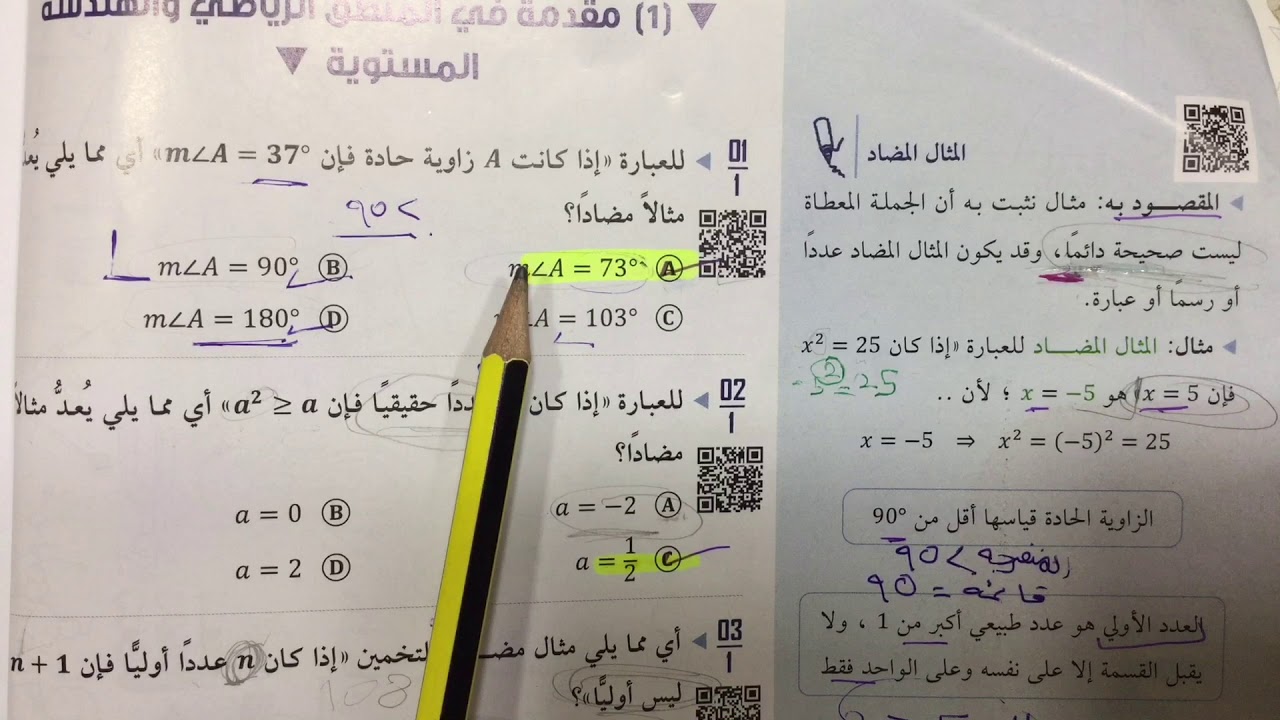 (1) مقدمة في المنطق الرياضي والهندسة
المستوية
01
1
للعبارة «إذا كانت A زاوية حادة فإن m∠A = 37°» أي مما يلي
مثالاً مضادًا؟
90 >
A m∠A = 73°
B m∠A = 90°
C A = 103°
D m∠A = 180°
02
1
للعبارة «إذا كان حقيقيًا فإن a² ≥ a» أي مما يلي يُعدُّ مثالاً
مضادًا؟
A a = −2
B a = 0
C a = 1/2
D a = 2
03
1
أي مما يلي مثال «إذا كان n عددًا أوليًّا فإن n + 1
ليس أوليًّا»؟
108
المثال المضاد
المقصود به: مثال نثبت به أن الجملة المعطاة
ليست صحيحة دائمًا، وقد يكون المثال المضاد عددًا
أو رسمًا أو عبارة.
مثال: المثال المضاد للعبارة «إذا كان x² = 25
فإن x = 5» هو x = −5 ؛ لأن ..
-5² = 25
x = −5 ⇒ x² = (−5)² = 25
الزاوية الحادة قياسها أقل من 90°
المنفرجة > 90
قائمة = 90
العدد الأولي هو عدد طبيعي أكبر من 1 ، ولا
يقبل القسمة إلا على نفسه وعلى الواحد فقط